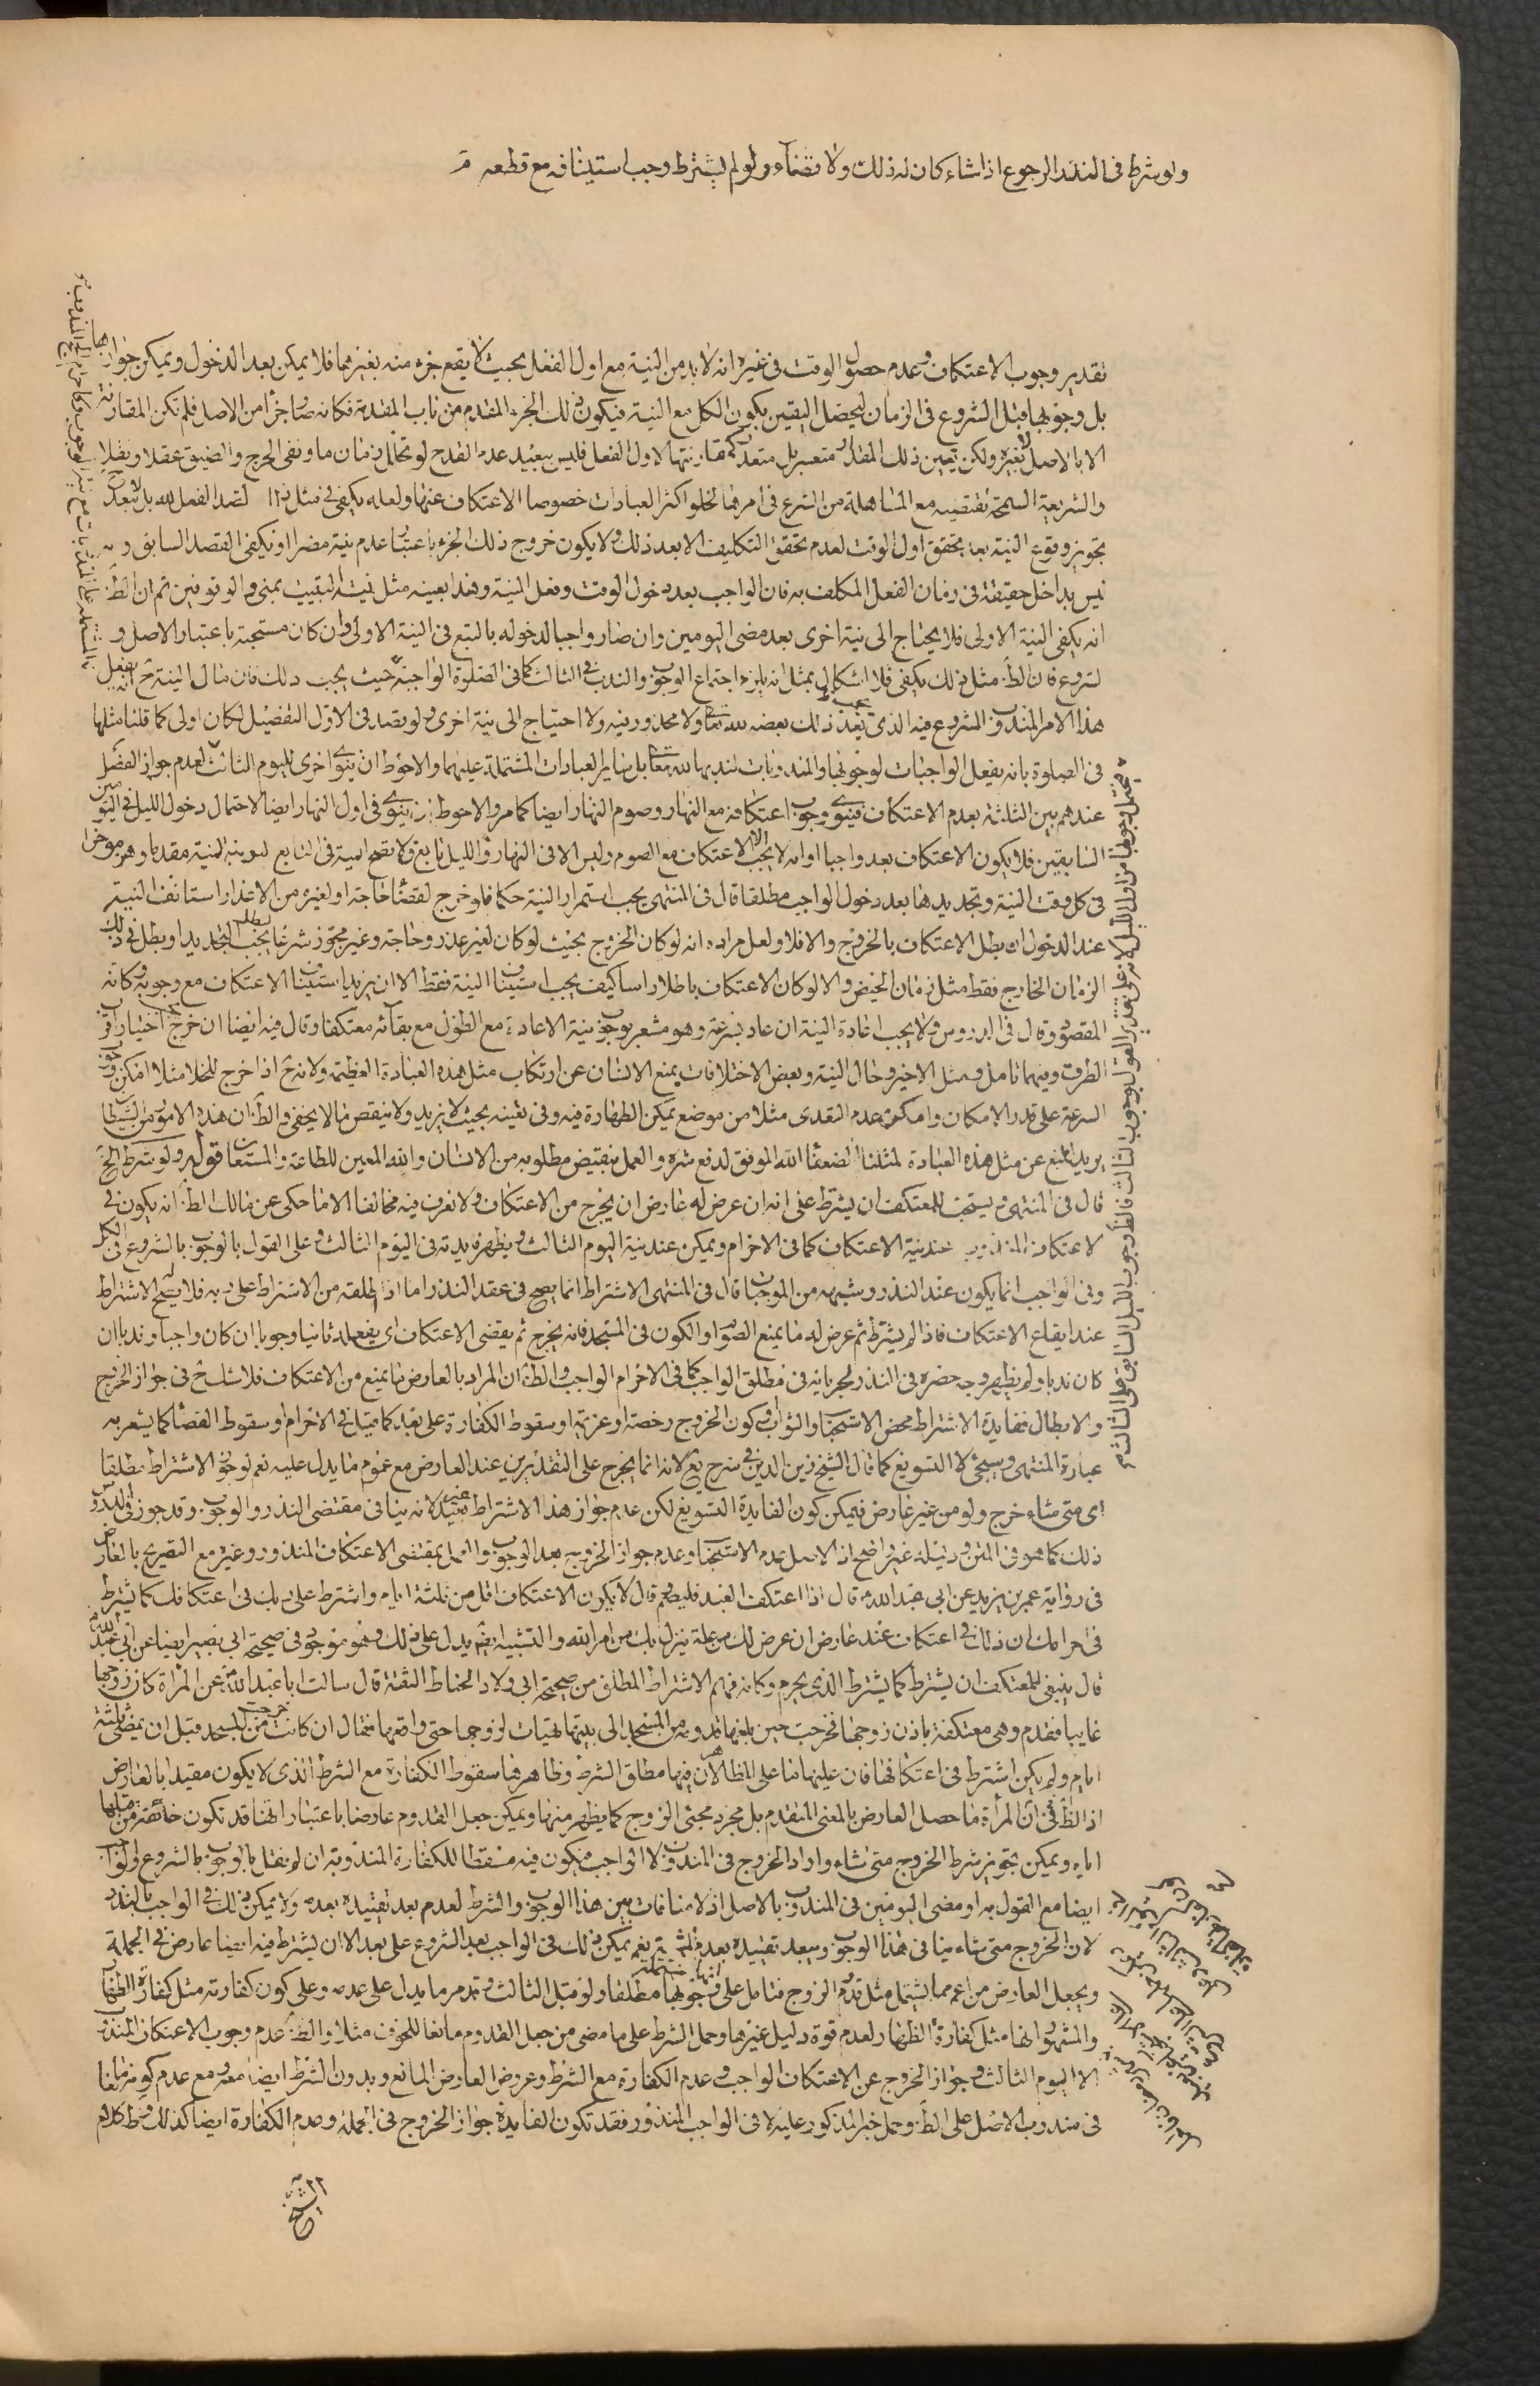 ولو شرط فى النذر الرجوع اذا شاء كان له ذلك ولا قضاء ولو لم يشترط وجب استينافه مع قطعه
تقدير وجوب الاعتكاف وعدم حصول الوقت فى غيره انه لا بد من النية مع اول الفعل بحيث لا يقع جزء منه بغيرها فلا يمكن بعد الدخول ويمكن جوازها
بل وجوبها قبل الشروع فى الزمان ليحصل اليقين بكون الكل مع النية فيكون ذلك الجزء المقدم من باب المقدمة فكانه صار جزأ من الاصل فلم تكن المقارنة
الا بالاصل لا بغيره ولكن تعين ذلك المقدار متعسر بل متعذر كمقارنتها لاول الفعل فليس ببعيد عدم القدح لو تخلل زمان ما ونفى الحرج والضيق عقلا ونقلا
والشريعة السمحة تقتضيه مع المساهلة من الشرع فى امرها لخلو اكثر العبادات خصوصا الاعتكاف عنها ولعله يكفى فى مثل قصد الفعل لله بل لا يبعد
تجويز وقوع النية بعد تحقق اول الوقت لعدم تحقق التكليف الا بعد ذلك ولا يكون خروج ذلك الجزء باعتبار عدم نية مضرا او يكفى القصد السابق و
ليس بداخل حقيقة فى زمان الفعل المكلف به فان الواجب بعد دخول الوقت وفعل النية وهذا بعينه مثل نية المبيت بمنى والوقوفين ثم ان الظ
انه يكفى النية الاولى فلا يحتاج الى نية اخرى بعد مضى اليومين وان صار واجبا لدخوله بالتبع فى النية الاولى وان كان مستحبة باعتبار الاصل و
لشروع فان الظ مثل ذلك يكفى فلا اشكال بمثل انه يلزم اجتماع الوجوب والندب فى الثالث كما فى الصلوة الواجبة حيث يجب ذلك فان مال النية ح انه يفعل
هذا الامر المندوب المشروع فيه الذى بعد ذلك بعضه لله تعا ولا محذور فيه ولا احتياج الى نية اخرى ولو بقصد فى الاول التفصيل لكان اولى كما قلنا مثلها
فى الصلوة بانه يفعل الواجبات لوجوبها والمندوبات لندبها لله تعا بل ساير العبادات المشتملة عليهما والاحوط ان ينوى اخرى لليوم الثالث لعدم جواز الفصل
عندهم بين الثلثة بعدم الاعتكاف فينوى وجوب اعتكافه مع النهار وصوم النهار ايضا كما مر والاحوط ان ينوى فى اول النهار ايضا لاحتمال دخول الليل فى اليومين
السابقين فلا يكون الاعتكاف بعد واجبا او انه لا يجب الا الاعتكاف مع الصوم وليس الا فى النهار والليل تابع ولا تصح النية فى التابع لنية المنية مقدما وهو مؤخرا
فى كل وقت النية وتجديدها بعد دخول الواجب مطلقا قال فى المنتهى يجب استمرار النية حكما فلو خرج لقضاء حاجة او لغيره من الاعذار استانف النية
عند الدخول ان بطل الاعتكاف بالخروج والا فلا ولعل مراده انه لو كان الخروج بحيث لو كان لغير عذر وحاجة وغير مجوز شرعا يجب التجديد او بطل فى ذلك
الزمان الخارج فقط مثل زمان الحيض والا لو كان الاعتكاف باطلا راسا كيف يجب استيناف النية فقط الا ان يريد استيناف الاعتكاف مع وجوبه وكانه
المقصود وقال فى الدروس ولا يجب اعادة النية ان عاد بسرعة وهو مشعر بوجوب نية الاعادة مع الطول مع بقائه معتكفا وقال فيه ايضا ان خرج اختيار اقرب
الطرق وفيهما تامل ومثل الاخير وحال النية وبعض الاختلافات يمنع الانسان عن ارتكاب مثل هذه العبادة العظيمة ولانه ح اذا خرج للخلا مثلا امكن
السرعة على قدر الامكان وامكن عدم التعدى مثلا من موضع يمكن الطهارة فيه وفى تعينه بحيث لا يزيد ولا ينقص ما لا يخفى والظ ان هذه الامور من الشيطان
يريد المنع عن مثل هذه العبادة لمثلنا الضعفاء الله الموفق لدفع شره والعمل بنقيض مطلوبه من الانسان والله المعين للطاعة والمستعان قوله ولو شرط الخ
قال فى المنتهى ويستحب للمعتكف ان يشترط على انه ان عرض له عارض ان يخرج من الاعتكاف ولا نعرف فيه مخالفا الا ما حكى عن مالك الظ انه يكون فى
لاعتكاف المندوب عند نية الاعتكاف كما فى الاحرام ويمكن عند نية اليوم الثالث ويظهر فايدته فى اليوم الثالث وعلى القول بالوجوب بالشروع فى الكل
وفى الواجب انما يكون عند النذر وشبهه من الموجبات قال فى المنتهى الاشتراط انما يصح فى عقد النذر اما اذا اطلقه من الاشتراط على ربه فلا يصح الاشتراط
عند ايقاع الاعتكاف فاذا لم يشترط ثم عرض له ما يمنع الصوم او الكون فى المسجد فانه يخرج ثم يقضى الاعتكاف اى يفعله ثانيا وجوبا ان كان واجبا وندبا ان
كان ندبا ولم يظهر وجه حصره فى النذر لجريانه فى مطلق الواجب كما فى الاحرام الواجب والظ ان المراد بالعارض ما يمنع من الاعتكاف فلا شك ح فى جواز الخروج
والابطال ففايدة الاشتراط محض الاستحباب والثواب وكون الخروج رخصة او عزيمة او سقوط الكفارة على بعد كما قيل فى الاحرام او سقوط القضاء كما يشعر به
عبارة المنتهى وسيجئ لا التسويغ كما قال الشيخ زين الدين فى شرح يع لانه انما يخرج على التقديرين عند العارض مع عموم ما يدل عليه نعم لو جوز الاشتراط مطلقا
اى متى شاء خرج ولو من غير عارض فيمكن كون الفايدة التسويغ لكن عدم جواز هذا الاشتراط غير بعيد لانه ينافى مقتضى النذر والوجوب وقد جوز فى الدروس
ذلك كما هو فى المتن ودليله غير واضح اذ الاصل عدم الاستحباب وعدم جواز الخروج بعد الوجوب والعمل بمقتضى الاعتكاف المنذور وغيره مع التصريح بالعارض
فى رواية عمر بن يزيد عن ابى عبد الله ع قال اذا اعتكف العبد فليصم قال لا يكون الاعتكاف اقل من ثلثة ايام واشترط على ربك فى اعتكافك كما تشترط
فى احرامك ان ذلك فى اعتكاف عند عارض ان عرض لك من علة ينزل بك من امر الله والتشبيه ايضا يدل على ذلك وهو موجود فى صحيحة ابى بصير ايضا عن ابى عبد الله ع
قال ينبغى للمعتكف ان يشترط كما يشترط الذى يحرم وكانه فهم الاشتراط المطلق من صحيحة ابى ولاد الحناط الثقة قال سالت ابا عبد الله ع عن امرأة كان زوجها
غايبا فقدم وهى معتكفة باذن زوجها فخرجت حين بلغها قدومه من المسجد الى بيتها فتهيات لزوجها حتى واقعها فقال ان كانت خرجت من المسجد قبل ان يمضى ثلثة
ايام ولم يكن اشترط فى اعتكافها فان عليها ما على المظاهر لان فيها مطلق الشرط وظاهرها سقوط الكفارة مع الشرط الذى لا يكون مقيدا بالعارض
اذ الظ فى ان المرأة ما حصل العارض بالمعنى المتقدم بل مجرد مجئ الزوج كما يظهر منها ويمكن جعل القدوم عارضا باعتبار انها قد تكون خائفة من
ايام ويمكن تجويز شرط الخروج متى شاء واراد الخروج فى المندوب لا الواجب فيكون فيه مسقطا للكفارة المندوبة ان لم نقل بالوجوب بالشروع او
ايضا مع القول به او مضى اليومين فى المندوب بالاصل اذ لا منافات بين هذا الوجوب والشرط لعدم بعد تقييده بعده ولا يمكن ذلك فى الواجب بالنذر
لان الخروج متى شاء ينافى هذا الوجوب ويبعد تقييده بعدم نعم يمكن ذلك فى الواجب بعد الشروع على بعد الا ان يشترط فيه ايضا عارض فى الجملة
ويجعل العارض من اعم مما يشتمل مثل قدوم الزوج فتامل على وجوبها مطلقا ولو قبل الثالث وقد مر ما يدل على عدمه وعلى كون كفارته مثل كفارة الظهار
والمشهور انها مثل كفارة الظهار لعدم قوة دليل غيرها وحمل الشرط على ما مضى من جعل القدوم مانعا للخوف مثلا والظ عدم وجوب الاعتكاف المندوب
الا اليوم الثالث وجواز الخروج عن الاعتكاف الواجب وعدم الكفارة مع الشرط وعروض العارض المانع وبدون الشرط ايضا معه مع عدم كونه مانعا
فى مندوب الاصل على الظ وحمل خبر المذكور عليه لا فى الواجب المنذور فقد تكون الفايدة جواز الخروج فى الجملة وعدم الكفارة ايضا كذلك وظ كلام
الشيخ